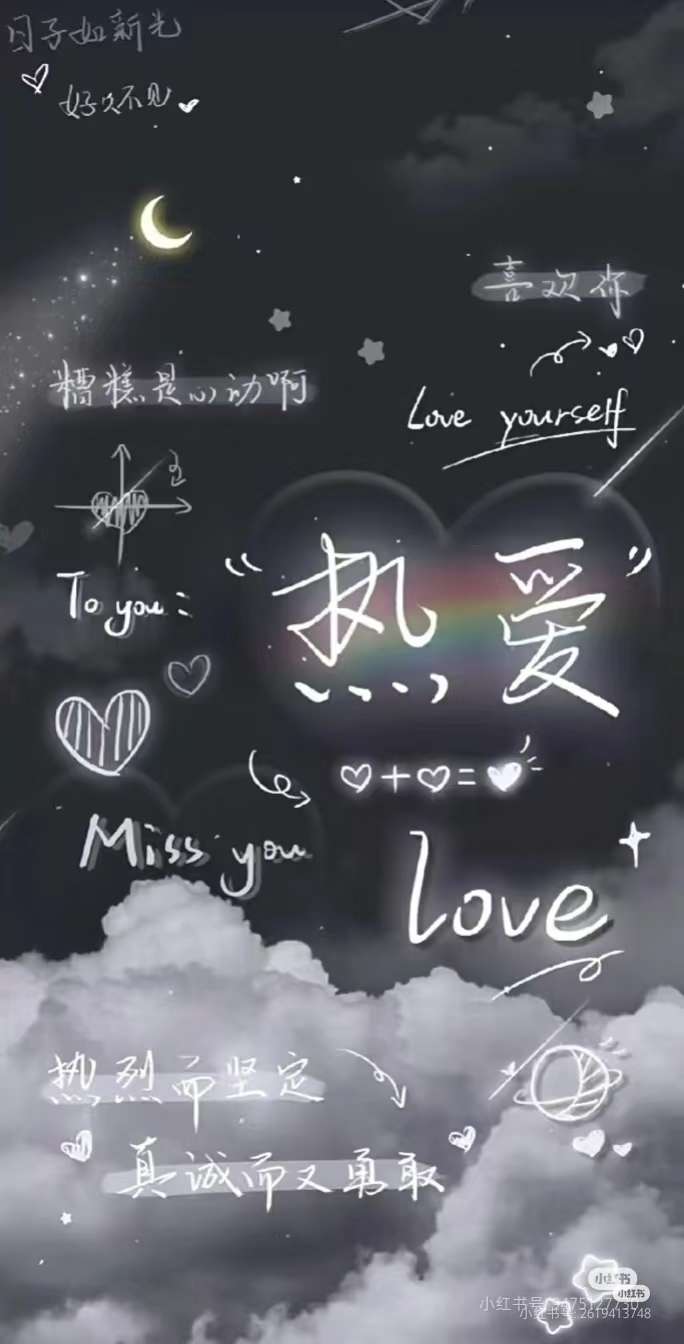 日子如新光
好久不见
喜欢你
糟糕是心动啊
Love yourself
To you:
“热爱”
+ =
Miss you
love
热烈而坚定
真诚而又勇敢
小红书
小红书
小红书号:
小红书号: 2619413748